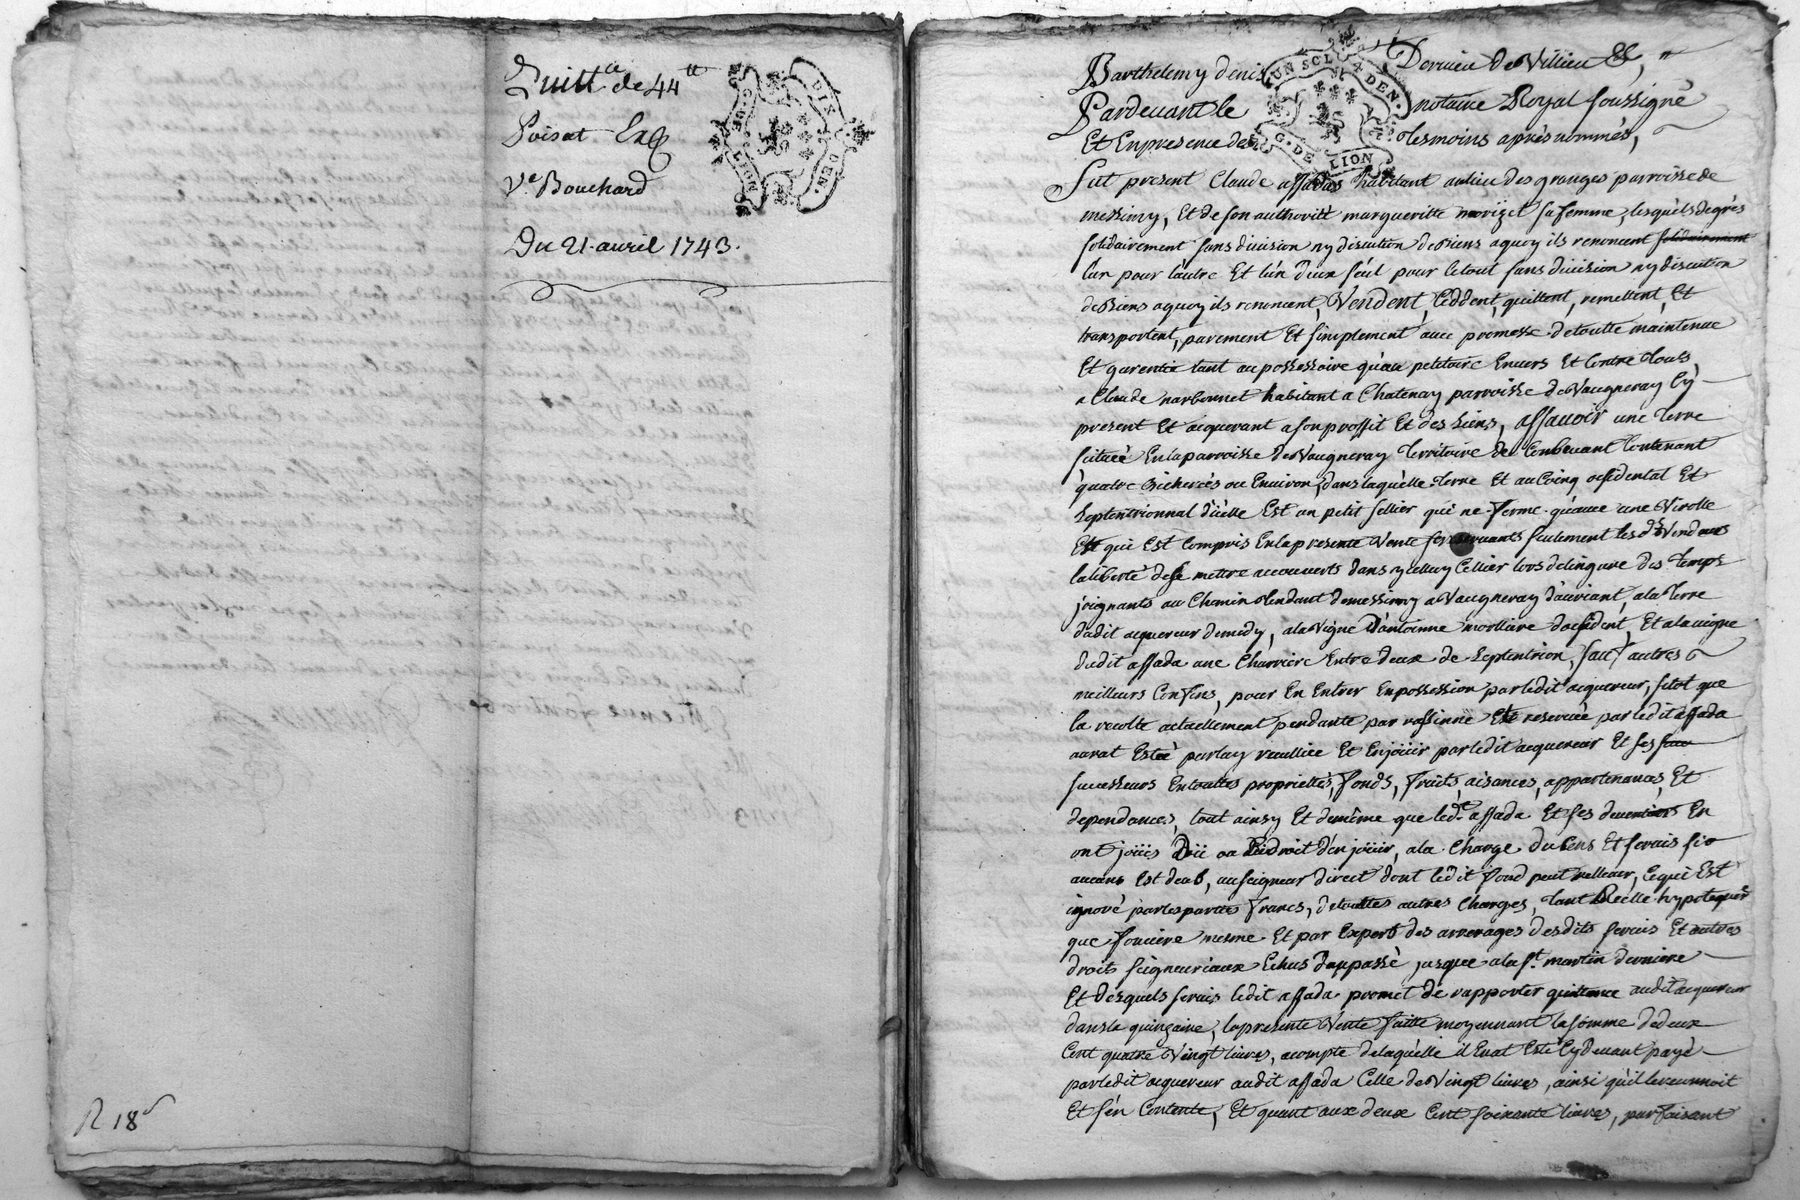 Quitt.ce de 44 tt
Poisat Ex
V.e Bouchard
Du 21. avril 1743.
DIX DEN.
G. DE LION
R 18
Barthelemy denis Dervieu de Villieu &,
UN SOL 4 DEN.
G. DE LION
Pardevant le notaire Royal soussigné
Et En presence des tesmoins après nommés,
fut present Claude assadas habitant au lieu des granges parroisse de
messimy, Et de son authorité margueritte morizet sa femme, lesquels de grés
solidairement sans division ny discution de biens a quoy ils renoncent solidairement
l'un pour lautre Et lún deux séul pour le tout sans division ny discution
de Biens a quoy ils renoncent, Vendent, Ceddent, quittent, remettent, Et
transportent, purement Et simplement avec promesse de toutte maintenue
Et garentie tant au possessoire qúau petitoire Envers Et Contre tous,
a Claude narbonnet habitant a Chatenay parroisse de Vaugneray Cy
present Et acquerant a son proffit Et des siens, assavoir une terre
scituée En la parroisse de Vaugneray territoire de Contenant
quatre Bicherées ou Environ, dans laquélle terre Et au Coing occidental Et
septentrionnal d'icelle Est un petit sellier qui ne ferme qúavec une Virolle
Et qui Est Compris En la presente Vente seulement les d.ts Vendeurs
la liberté de se mettre a couverts dans ycelluy Cellier lors de lingure des temps
joignants au Chemin tendant de messimy a Vaugneray d'auriant, a la terre
dudit acquereur de midy, a la Vigne d'antoinne d'occident, Et a la vigne
dudit assada une Charriere Entre deux de septentrion, sauf autres
meilleurs Confins, pour En Entrer En possession par ledit acquereur, sitot que
la recolte actuellement pendante par rassinne Est reservée par ledit assada
aurat Esté par luy reculliée Et En jöuir par ledit acquereur Et ses suc
successeurs En touttes proprietes, fonds, fruits, aisances, appartenances, Et
dependances, tout ainsy Et de même que led.t assada Et ses devanciers En
ont jöuis Dû ou dû droit d'en jöuir, a la Charge du Cens Et servis si
aucuns Est deub, au seigneur direct dont ledit fond peut relleuer, ce qui Est
ignoré par les parties francs, de touttes autres Charges, tant Reelle hypotequere
que fonciere mesme Et par Exprés des arrerages desdits servis Et autres
droits seigneuriaux Echus du passé jusques a la s.t martin derniere
Et desquels servis ledit assada promet de rapporter quittance audit acquereur
dans la quinzaine, la presente Vente faitte moyennant la somme de deux
Cent quatre Vingt livres, a compte de laquélle il En at Esté Cy devant payé
par ledit acquereur audit assada Celle de Vingt livres, ainsi qu'il le reconnoit
Et s'en Contente, Et quant aux deux Cent soixante livres, parfaisant